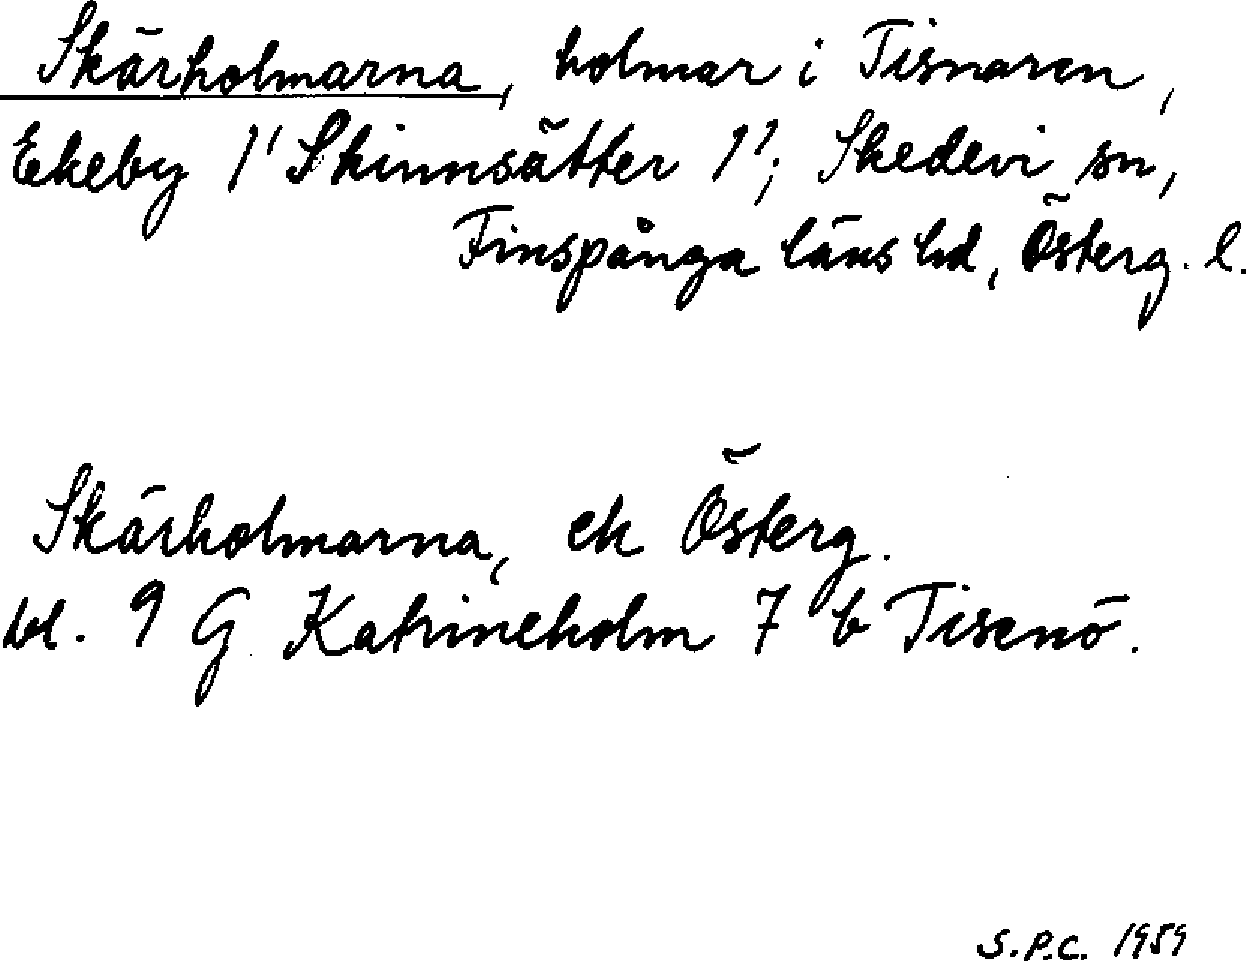 Skärholmarna, holmar i Tisnaren,
Ekeby 1' Skinnsätter 1'; Skedevi sn,
Finspånga läns hd, Österg. l.
Skärholmarna, ek Österg.
bl. 9 G Katrineholm 7 b Tisenö.
S.P.C. 1959